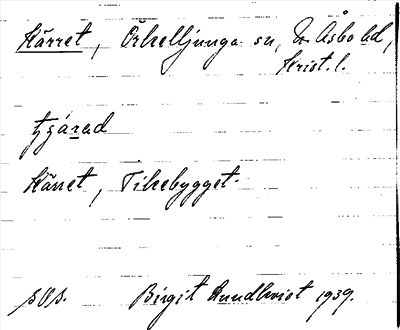 Kärret, Örkelljunga sn, N. Åsbo hd,
Krist. l.
Kärret, Tikebygget.
sOs. Birgit Rundkvist 1939.